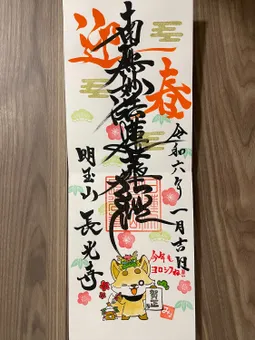 迎春
南無妙法蓮華経
令和六年 一月吉日
明玉山 長光寺
今年も
ヨロシクね!!
賀正